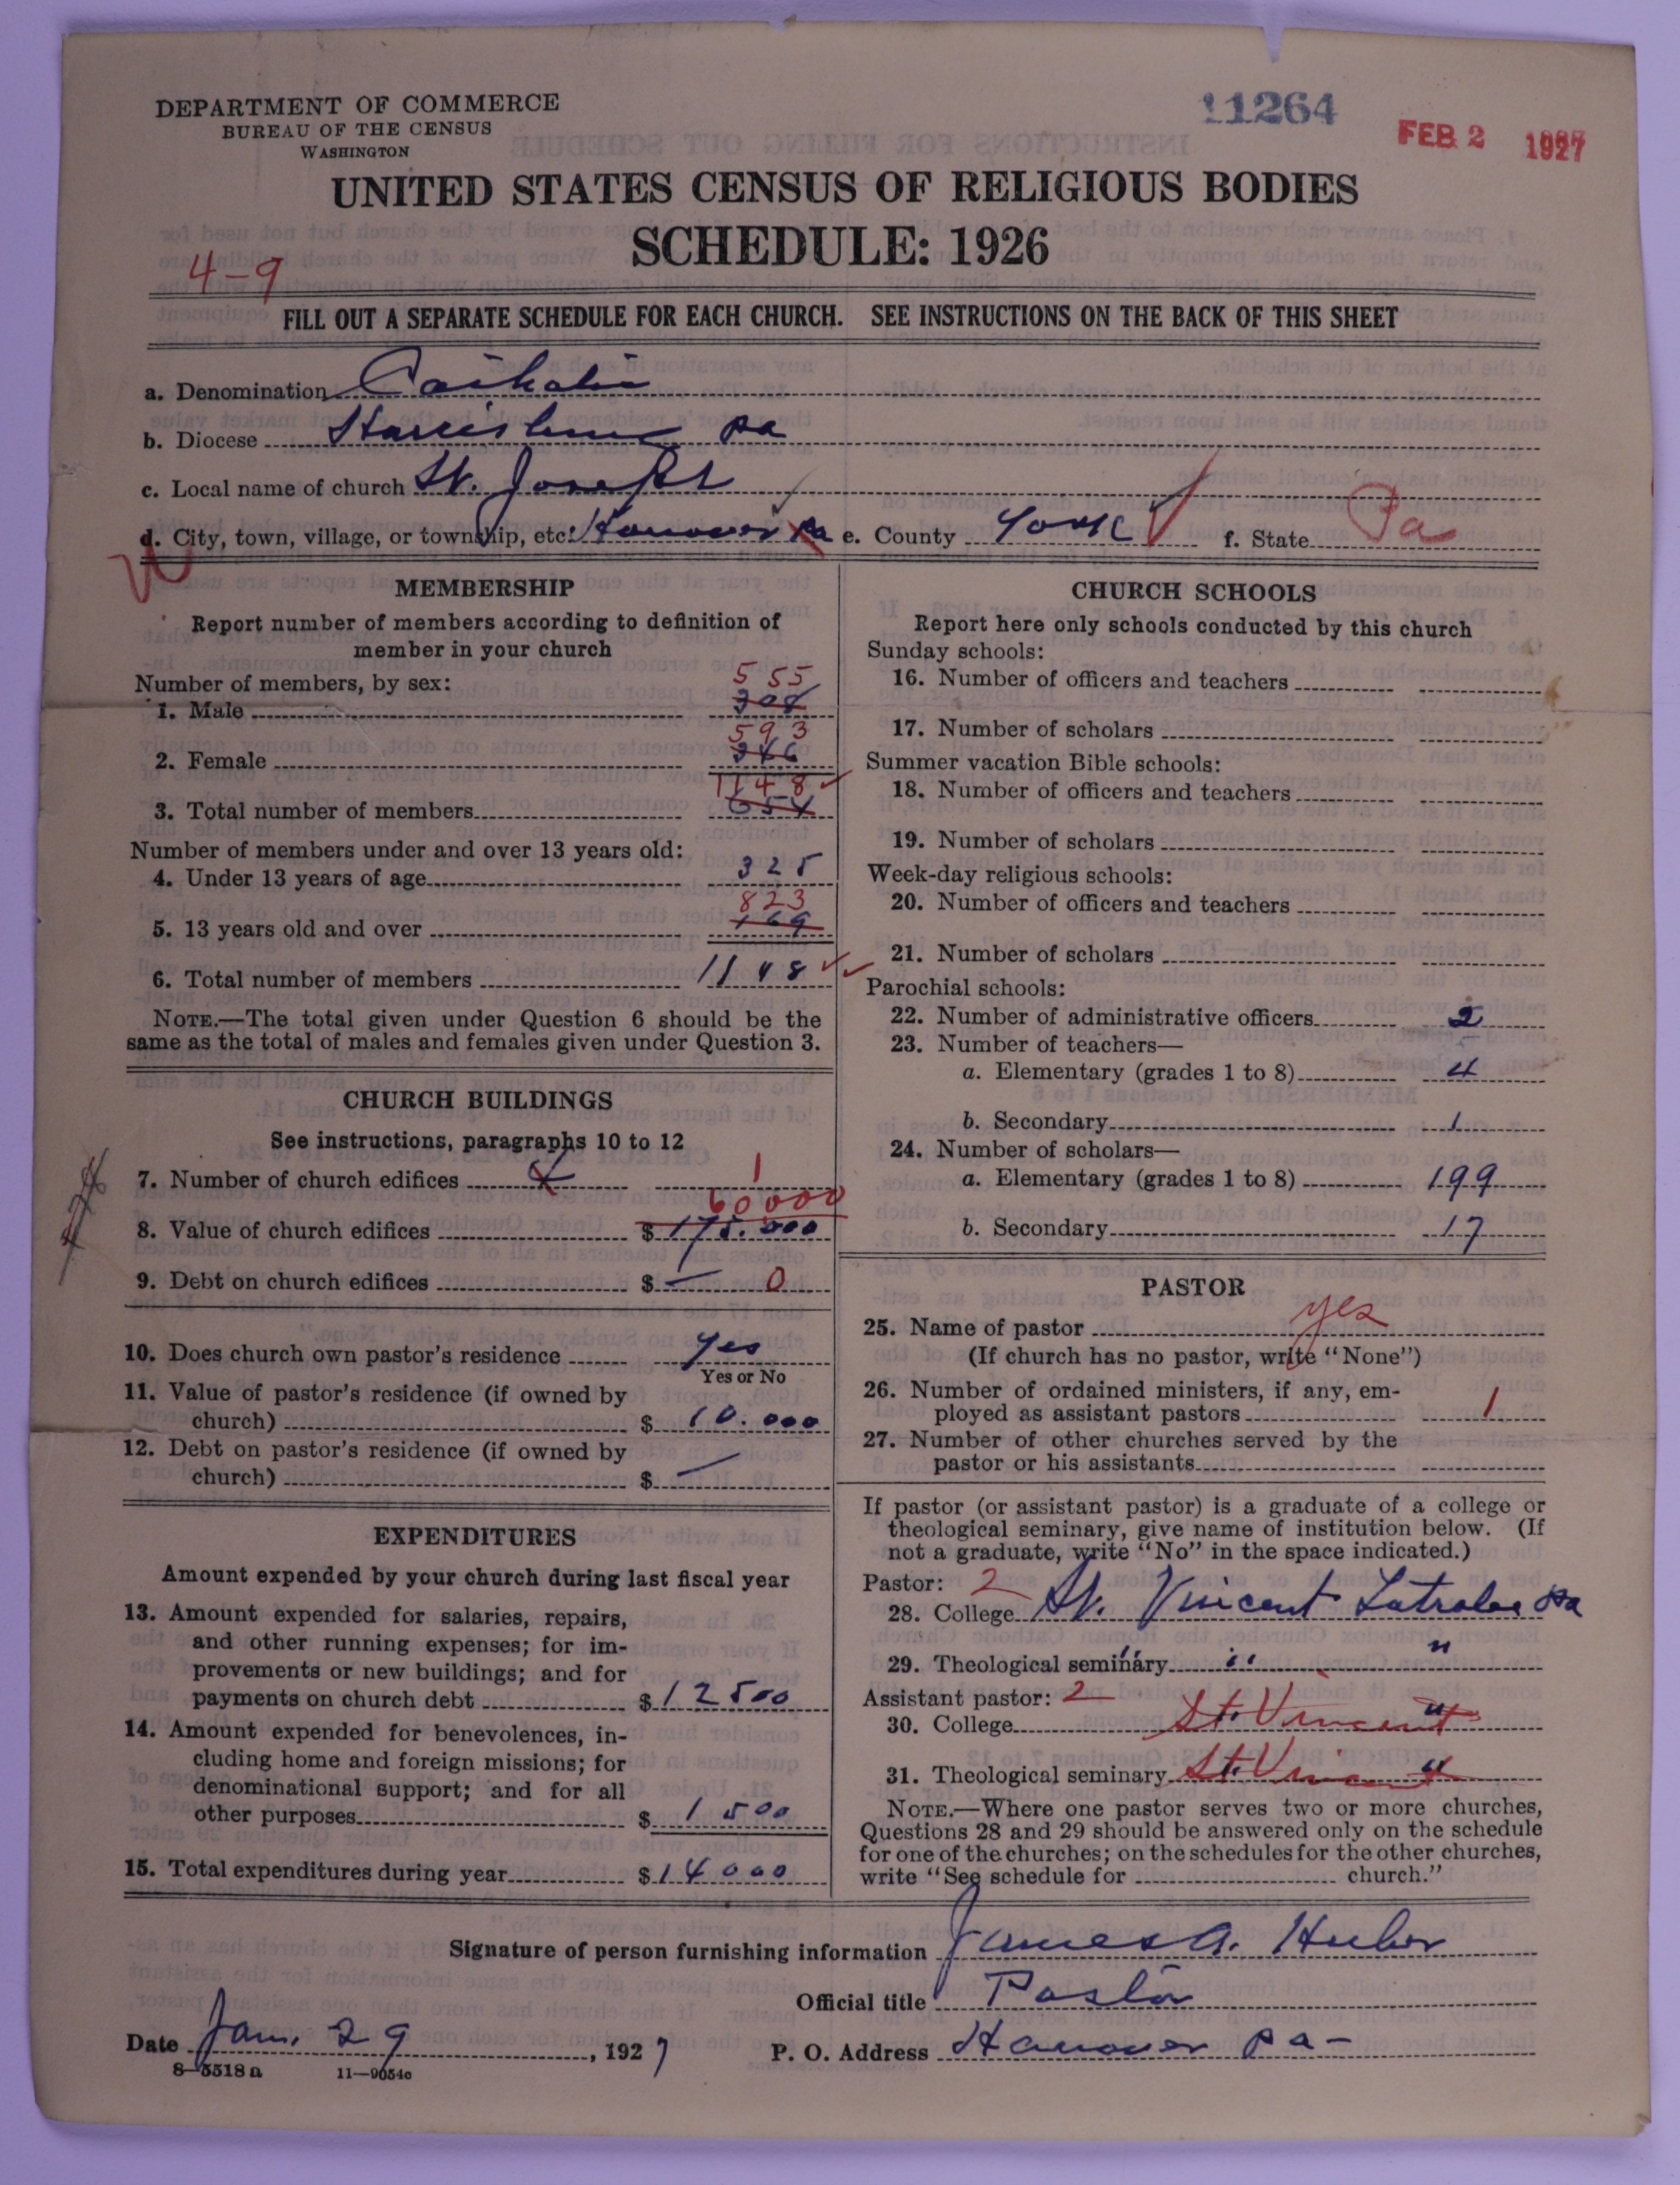 DEPARTMENT OF COMMERCE
BUREAU OF THE CENSUS
WASHINGTON
11264
FEB 2 1927
UNITED STATES CENSUS OF RELIGIOUS BODIES
SCHEDULE: 1926
4-9
FILL OUT A SEPARATE SCHEDULE FOR EACH CHURCH. SEE INSTRUCTIONS ON THE BACK OF THIS SHEET
a. Denomination Catholic
b. Diocese Harrisburg Pa
c. Local name of church St. Joseph
d. City, town, village, or township, etc. Hanover Pa e. County York f. State Pa
MEMBERSHIP
Report number of members according to definition of
member in your church
Number of members, by sex:
555
1. Male 308
593
2. Female 346
1148
3. Total number of members 654
Number of members under and over 13 years old:
4. Under 13 years of age 325
823
5. 13 years old and over 169
6. Total number of members 1148
NOTE.—The total given under Question 6 should be the
same as the total of males and females given under Question 3.
CHURCH BUILDINGS
See instructions, paragraphs 10 to 12
7. Number of church edifices 1
60000
8. Value of church edifices $ 175.000
9. Debt on church edifices $ — 0
10. Does church own pastor's residence yes
Yes or No
11. Value of pastor's residence (if owned by
church) $ 10.000
12. Debt on pastor's residence (if owned by
church) $ —
EXPENDITURES
Amount expended by your church during last fiscal year
13. Amount expended for salaries, repairs,
and other running expenses; for im-
provements or new buildings; and for
payments on church debt $ 12500
14. Amount expended for benevolences, in-
cluding home and foreign missions; for
denominational support; and for all
other purposes $ 1500
15. Total expenditures during year $ 14000
CHURCH SCHOOLS
Report here only schools conducted by this church
Sunday schools:
16. Number of officers and teachers
17. Number of scholars
Summer vacation Bible schools:
18. Number of officers and teachers
19. Number of scholars
Week-day religious schools:
20. Number of officers and teachers
21. Number of scholars
Parochial schools:
22. Number of administrative officers 2
23. Number of teachers—
a. Elementary (grades 1 to 8) 4
b. Secondary 1
24. Number of scholars—
a. Elementary (grades 1 to 8) 199
b. Secondary 17
PASTOR
25. Name of pastor yes
(If church has no pastor, write "None")
26. Number of ordained ministers, if any, em-
ployed as assistant pastors 1
27. Number of other churches served by the
pastor or his assistants
If pastor (or assistant pastor) is a graduate of a college or
theological seminary, give name of institution below. (If
not a graduate, write "No" in the space indicated.)
Pastor: 2
28. College St. Vincent Latrobe Pa
29. Theological seminary " " "
Assistant pastor: 2
30. College St. Vincent "
31. Theological seminary St. Vincent "
NOTE.—Where one pastor serves two or more churches,
Questions 28 and 29 should be answered only on the schedule
for one of the churches; on the schedules for the other churches,
write "See schedule for church."
Signature of person furnishing information James A. Huber
Official title Pastor
Date Jan. 29, 1927 P. O. Address Hanover Pa-
8-5518a 11-9054c